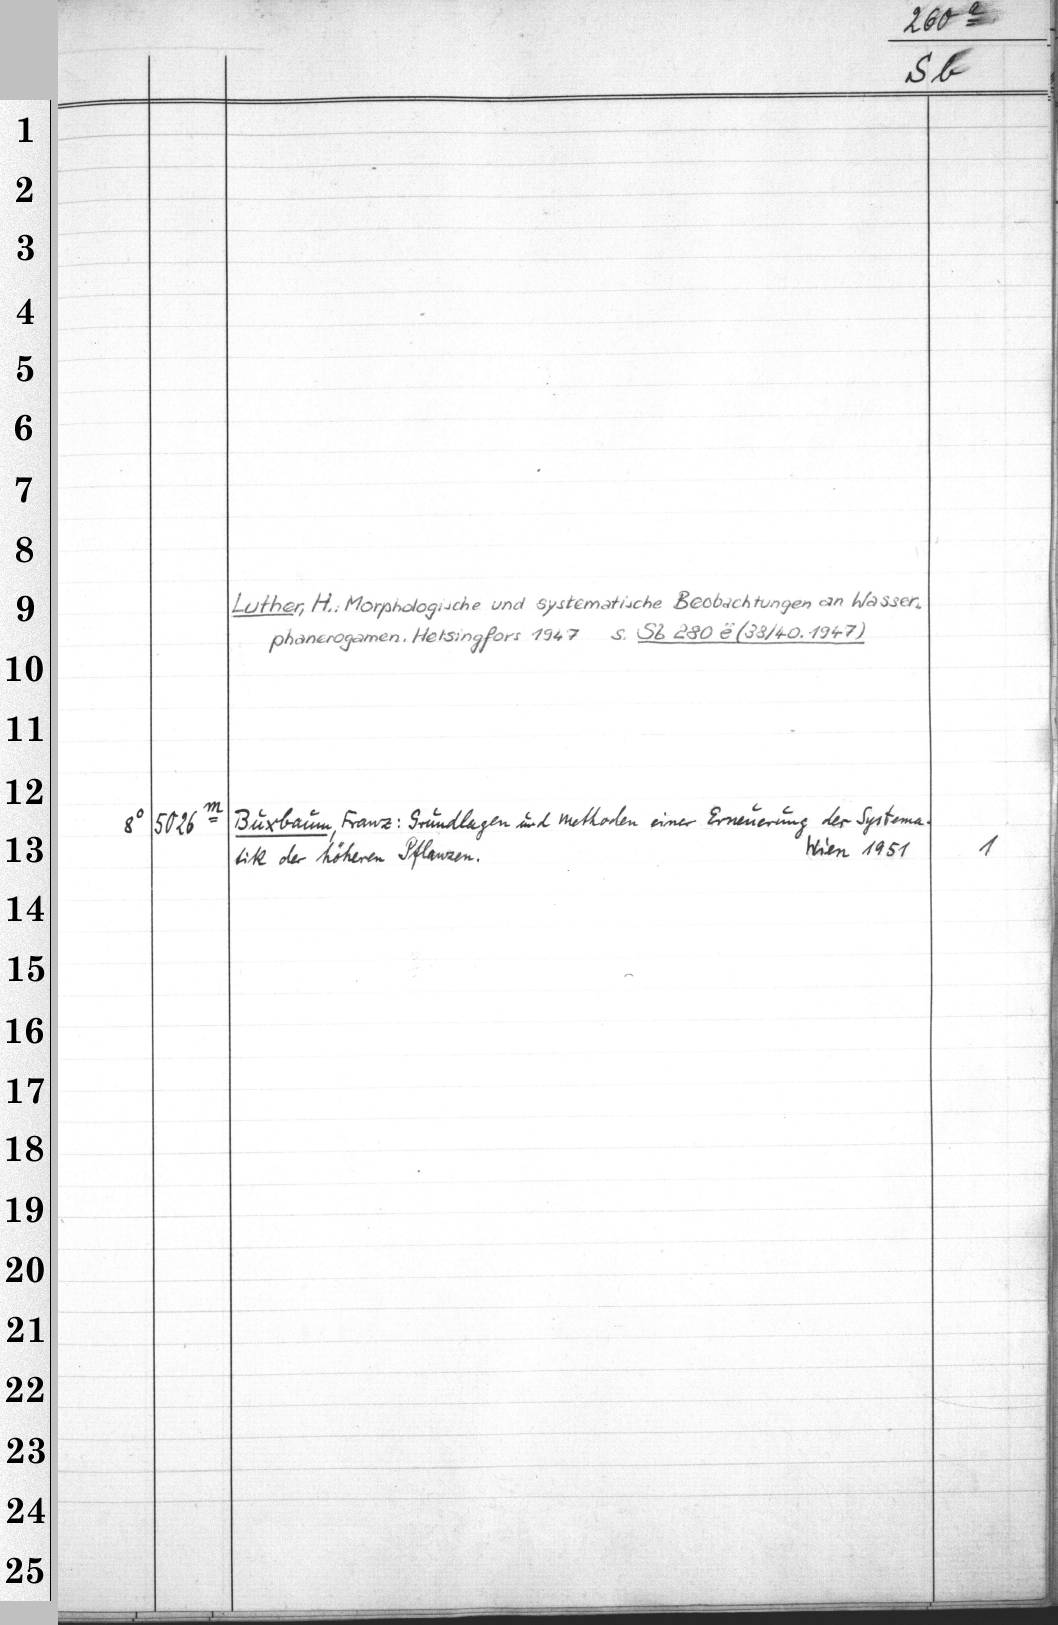 260 a
Sb
1
2
3
4
5
6
7
8
9
Luther, H.: Morphologische und systematische Beobachtungen an Wasser-
phanerogamen. Helsingfors 1947 s. Sb 280 ë (38/40.1947)
10
11
12
8° 5026 m Buxbaum, Franz: Grundlagen und Methoden einer Erneuerung der Systema-
13
tik der höheren Pflanzen. Wien 1951 1
14
15
16
17
18
19
20
21
22
23
24
25